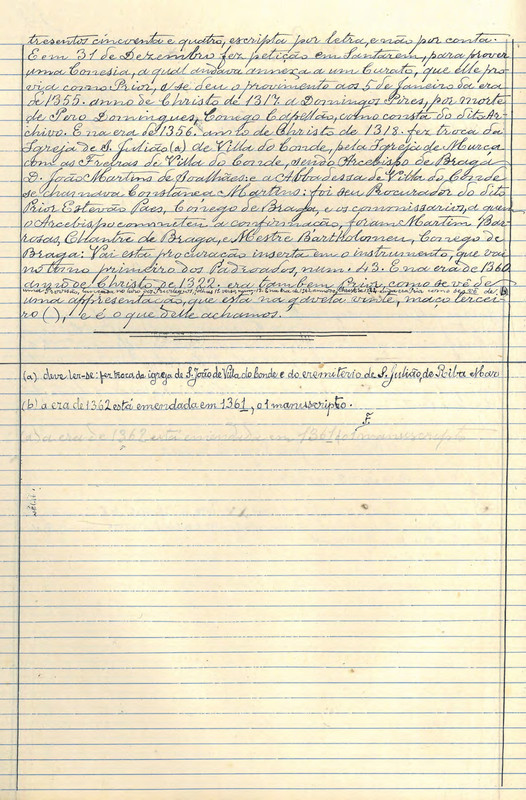 tresentos cincoenta e quatro, escripta por letra, e não por conta.
E em 31 de Dezembro fez petição em Santarem, para prover
uma Conesia, a qual andava annexa a um Curato, que elle pro-
via como Prior, e se deu o provimento aos 5 de Janeiro da era
de 1355. anno de Christo de 1317. a Domingos Pires, por morte
de Pero Domingues, Conego Capellão, como consta do dito Ar-
chivo. E na era de 1356. anno de Christo de 1318. fez troca da
Igreja de S. Julião (a) de Villa do Conde, pela Igreja de Murça
com as Freiras de Villa do Conde, sendo Arcebispo de Braga
D. João Martins de Soalhães: e a Abbadessa de Villa do Conde
se chamava Constança Martins: foi seu Procurador do dito
Prior Estevão Paes, Conego de Braga, e os commissarios, a quem
o Arcebispo commeteu a confirmação, foram Martim Bar-
rosas, Chantre de Braga, e Mestre Bartholomeu, Conego de
Braga: Vai esta procuração inserta em o instrumento, que vai
no como primeiro dos Padroados, num. 43. E na era de 1360
anno de Christo de 1322. era tambem Prior, como se vê de
uma
uma appresentação, que está na gaveta vinte, maço tercei-
ro (), e é o que delle achamos.
(a) deve ler-se: fez troca da igreja de S. João de Villa do Conde e do eremiterio de S. Julião, de Riba Mar
(b) a era de 1362 está emendada em 1361, o 1 manuscripto.
F.
a era de 1362 está emendada em 1361, o 1 manuscripto